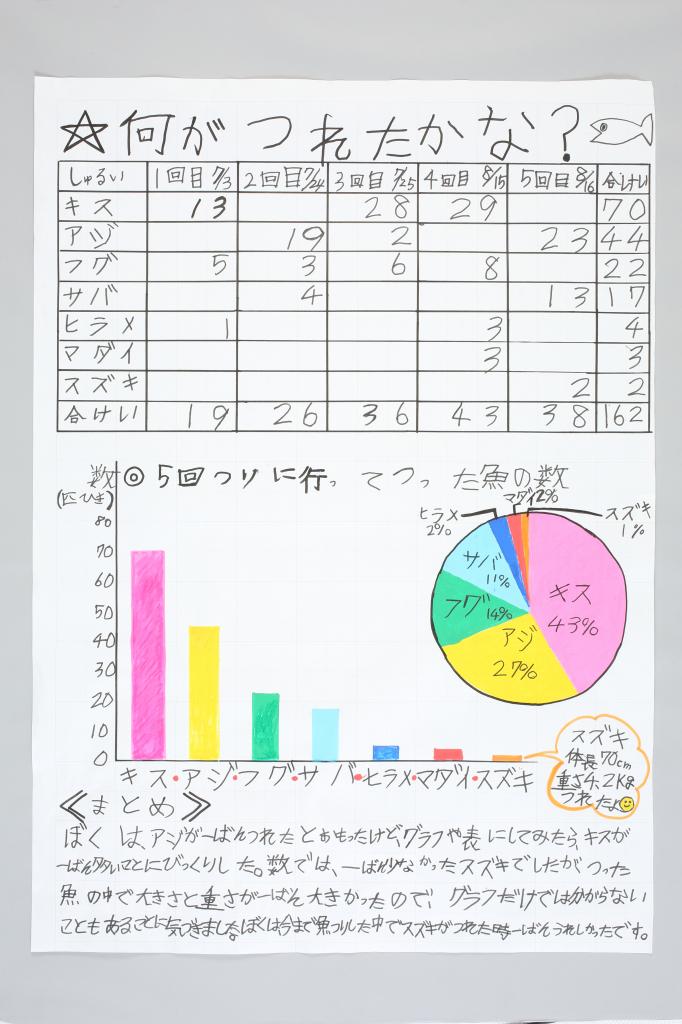 ☆何がつれたかな?
しゅるい 1回目7/3 2回目7/24 3回目7/25 4回目8/15 5回目8/16 合けい
キス 13 28 29 70
アジ 19 2 23 44
フグ 5 3 6 8 22
サバ 4 13 17
ヒラメ 1 3 4
マダイ 3 3
スズキ 2 2
合けい 19 26 36 43 38 162
数◎5回つりに行ってつった魚の数
(匹ひき)
80
70
60
50
40
30
20
10
0
キス・アジ・フグ・サバ・ヒラメ・マダイ・スズキ
ヒラメ
2%
マダイ2%
スズキ
1%
サバ
11%
フグ14%
アジ
27%
キス
43%
スズキ
体長70cm
重さ4.2Kg
つれたよ
≪まとめ≫
ぼくは、アジが一ばんつれたとおもったけど、グラフや表にしてみたら、キスが
一ばん多いことにびっくりした。数では、一ばん少なかったスズキでしたが、つった
魚の中で大きさと重さが一ばん大きかったので、グラフだけでは分からない
こともあることに気づきました。ぼくは今まで魚つりした中でスズキがつれた時一ばんうれしかったです。